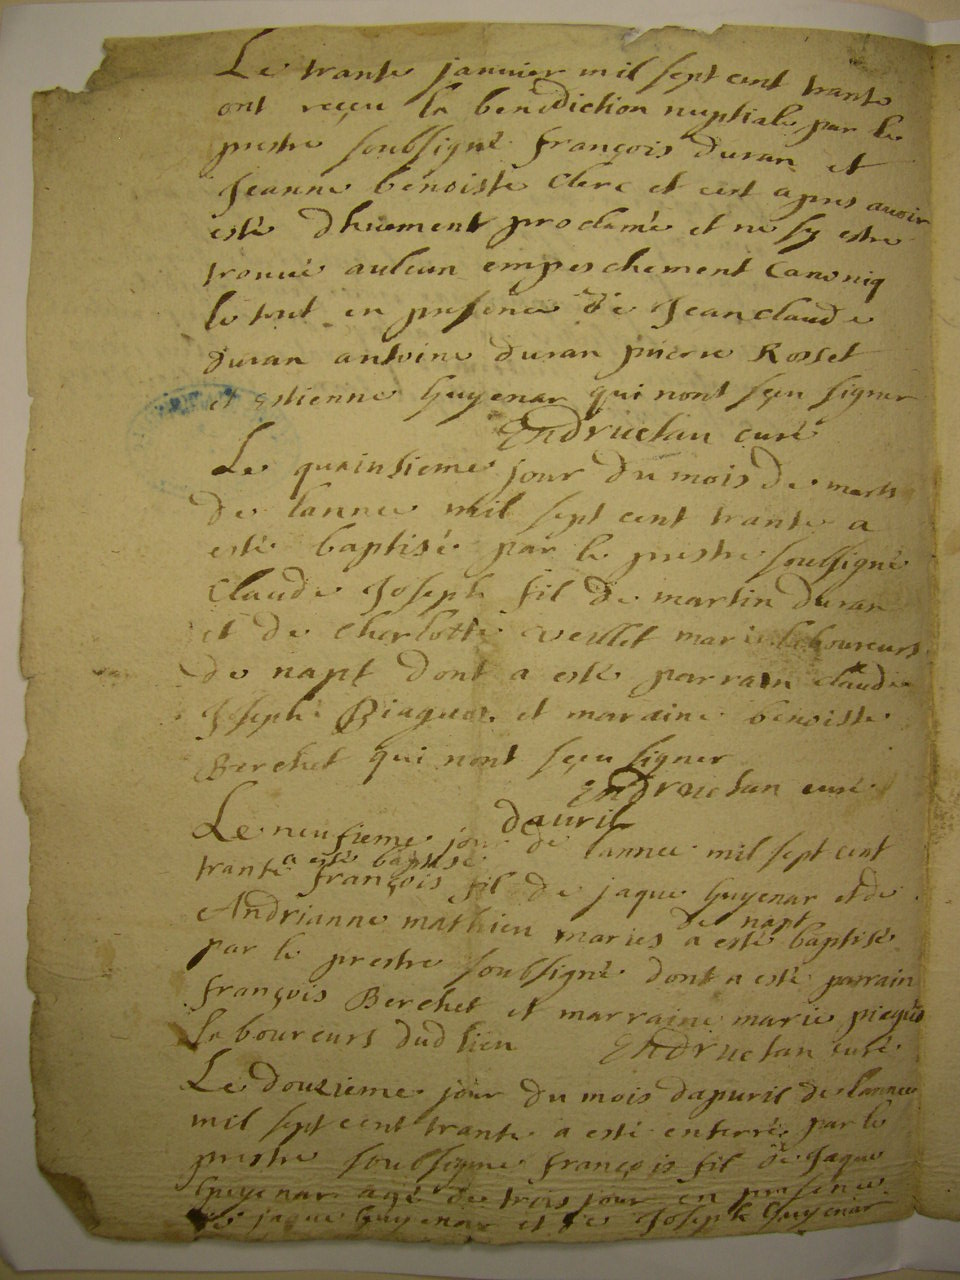 Le trante janvier mil sept cent trante
ont reçeu la benediction nuptiale par le
prestre soubsigné françois duran et
Jeanne benoiste Clerc et cert apres avoir
esté dhuement proclamé et ne sy estre
trouvé aulcun empeschement Canoniq
le tout en presence de Jean claude
duran antoine duran pierre Rosset
et estienne Guyenar qui nont sçeu signer
Endruetan curé
Le quainsieme jour du mois de mars
de lannee mil sept cent trante a
esté baptisé par le prestre soussigné
Claude Joseph fil de martin duran
et de Charlotte mariés laboureurs
de napt dont a esté parrain claude
Joseph et maraine benoiste
Berchet qui nont sçeu signer
Endruetan curé
davril
Le neufieme jour de lannee mil sept cent
a esté baptisé
trante françois fil de jaque Guyenar et de
de napt
Andrianne mathieu mariés a esté baptisé
par le prestre soubsigné dont a esté parrain
françois Berchet et marraine marie
laboureurs dud lieu Endruetan curé
Le douzieme jour du mois dapuril de lannee
mil sept cent trante a esté enterré par le
prestre soubsigne françois fil de Jaque
Guyenar agé de trois jour en presence
de jaque Guyenar et de Joseph Guyenar